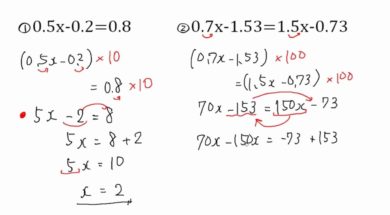 ①0.5x-0.2=0.8
(0.5x-0.2)×10
=0.8×10
5x-2=8
5x=8+2
5x=10
x=2
②0.7x-1.53=1.5x-0.73
(0.7x-1.53)×100
=(1.5x-0.73)×100
70x-153=150x-73
70x-150x=-73+153